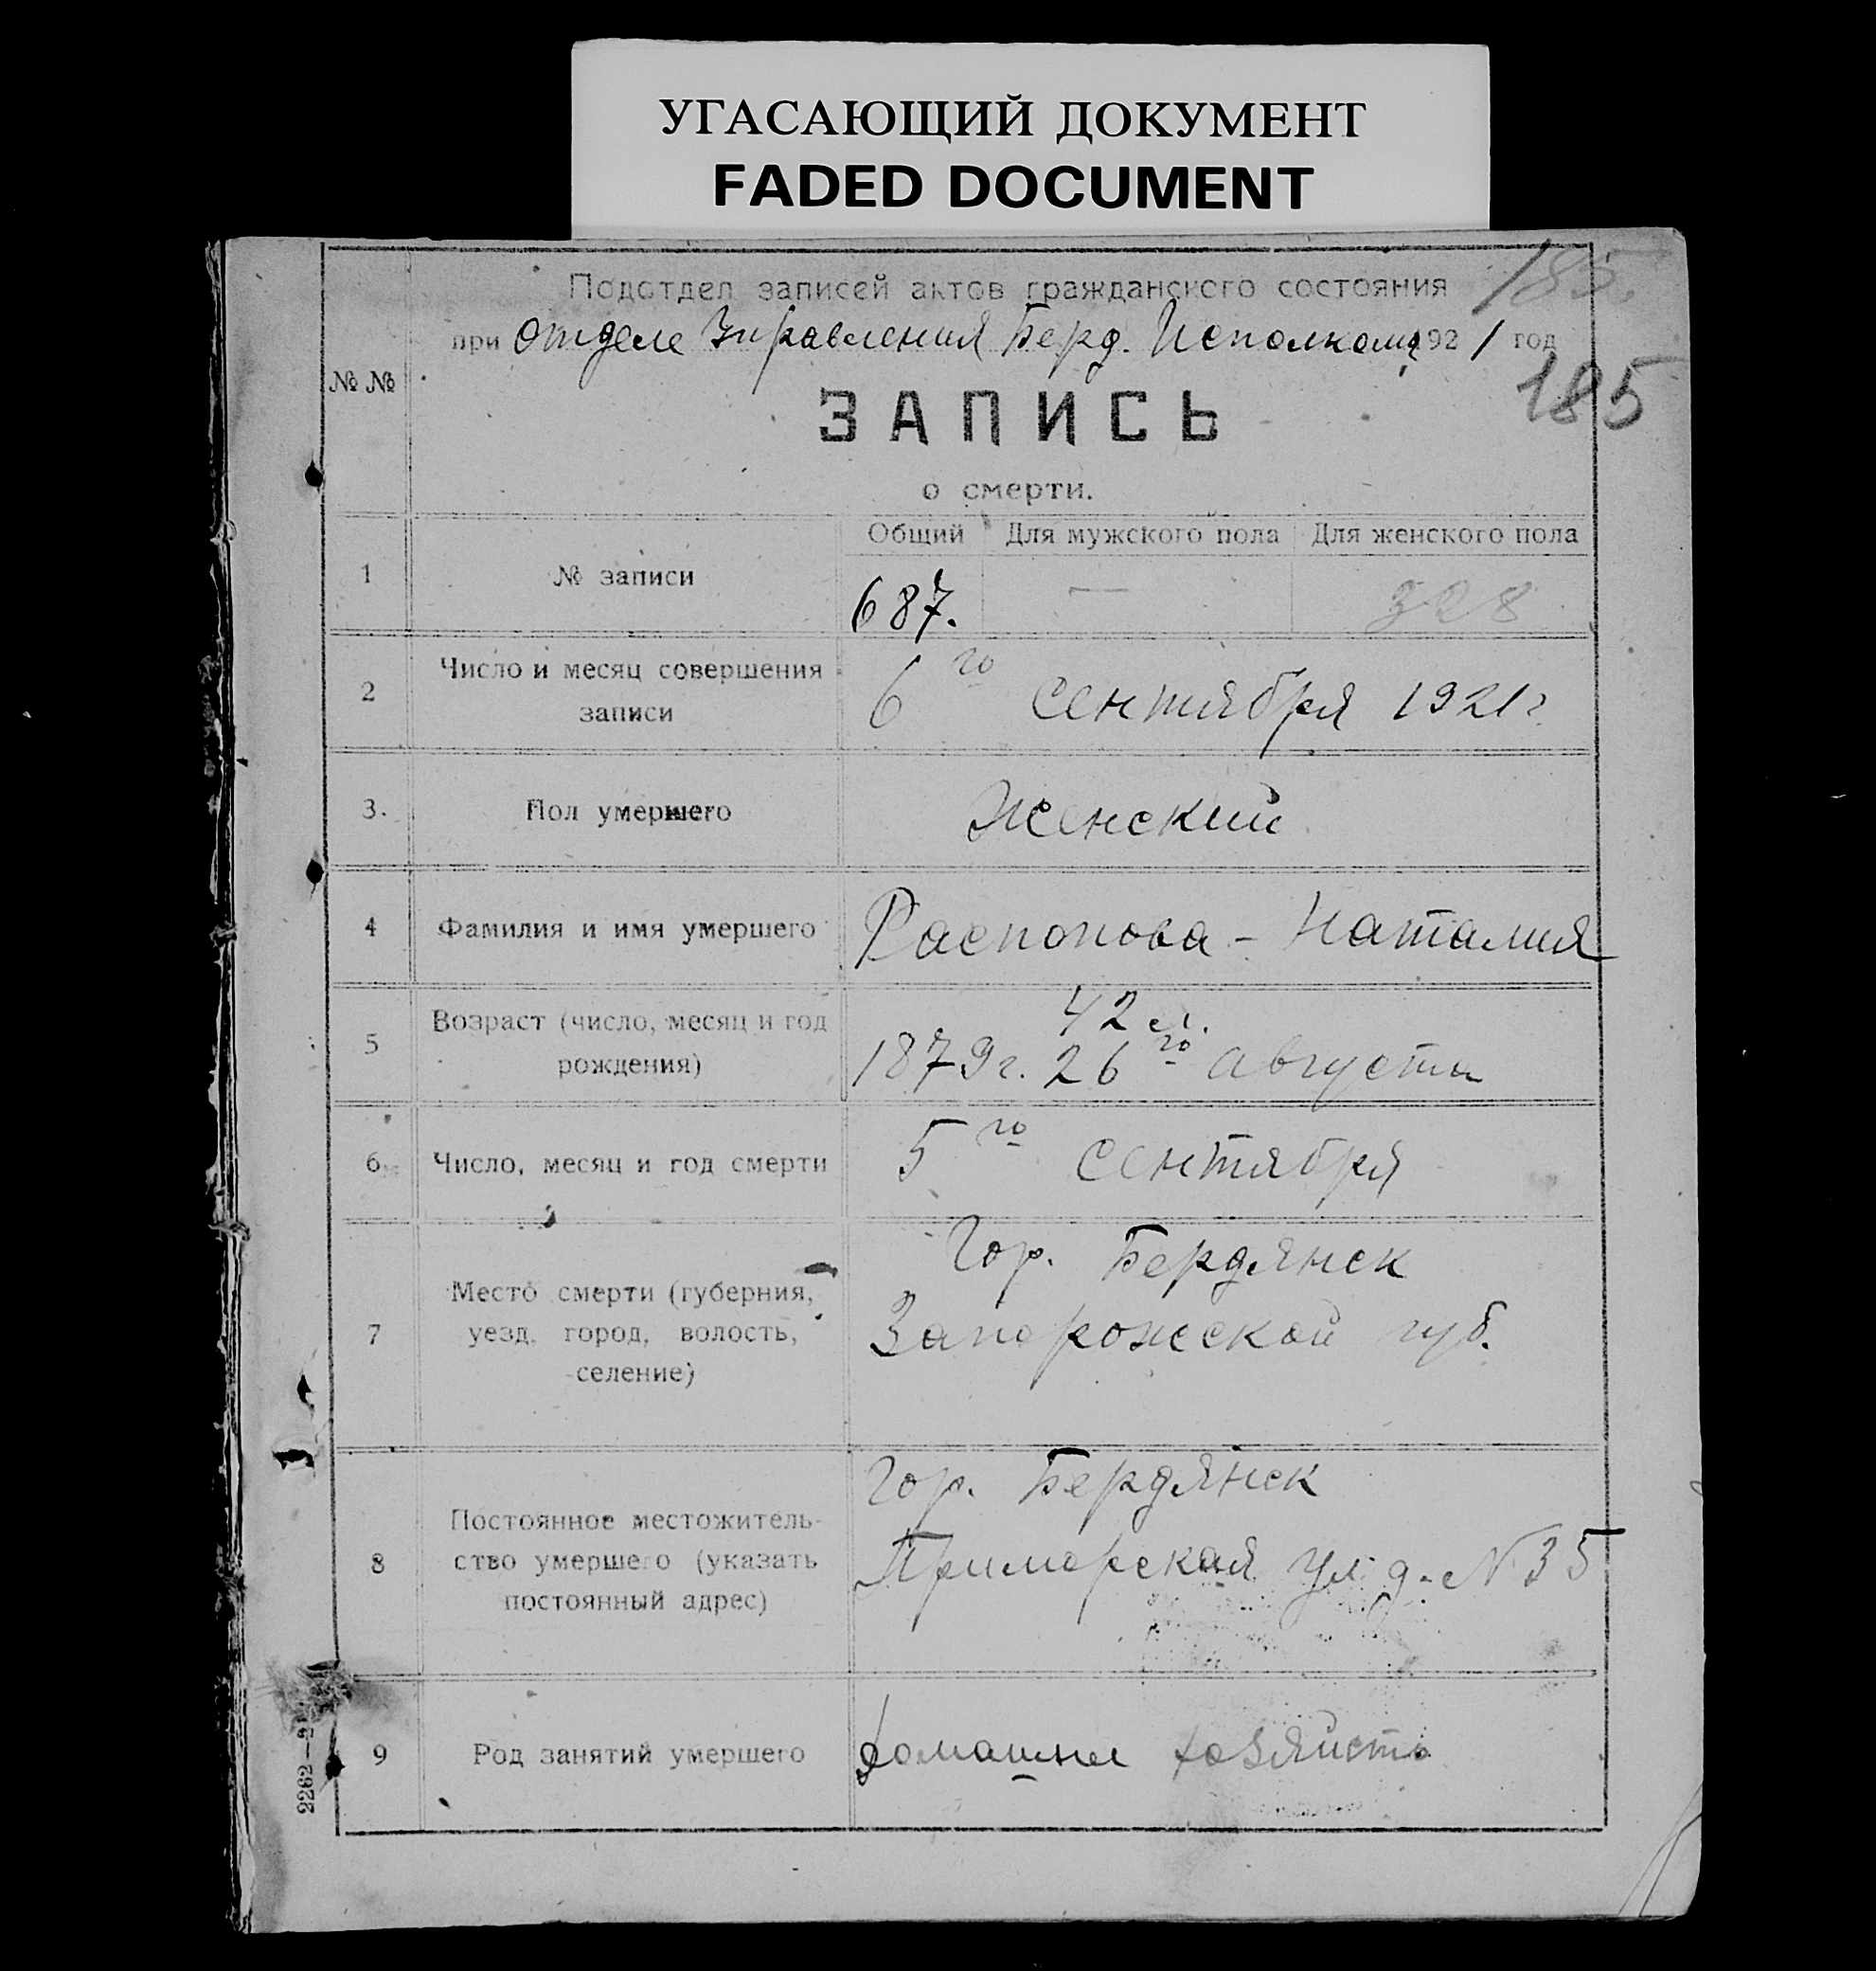 УГАСАЮЩИЙ ДОКУМЕНТ
FADED DOCUMENT
Подотдел записей актов гражданского состояния
185.
при отделе Управления Берд. Исполкома 1921 год
185
№ №
ЗАПИСЬ
о смерти.
Общий Для мужского пола Для женского пола
1 № записи 687. — 328
2 Число и месяц совершения
записи
6го сентября 1921 г.
3. Пол умершего Женский
4 Фамилия и имя умершего Распопова - Наталия
5 Возраст (число, месяц и год
рождения)
42 л.
1879 г. 26го августа
6 Число, месяц и год смерти 5го сентября
7 Место смерти (губерния,
уезд, город, волость,
селение)
Гор. Бердянск
Запорожской губ.
8 Постоянное местожитель-
ство умершего (указать
постоянный адрес)
Гор. Бердянск
Приморская ул. д. № 35
9 Род занятий умершего
2262—21